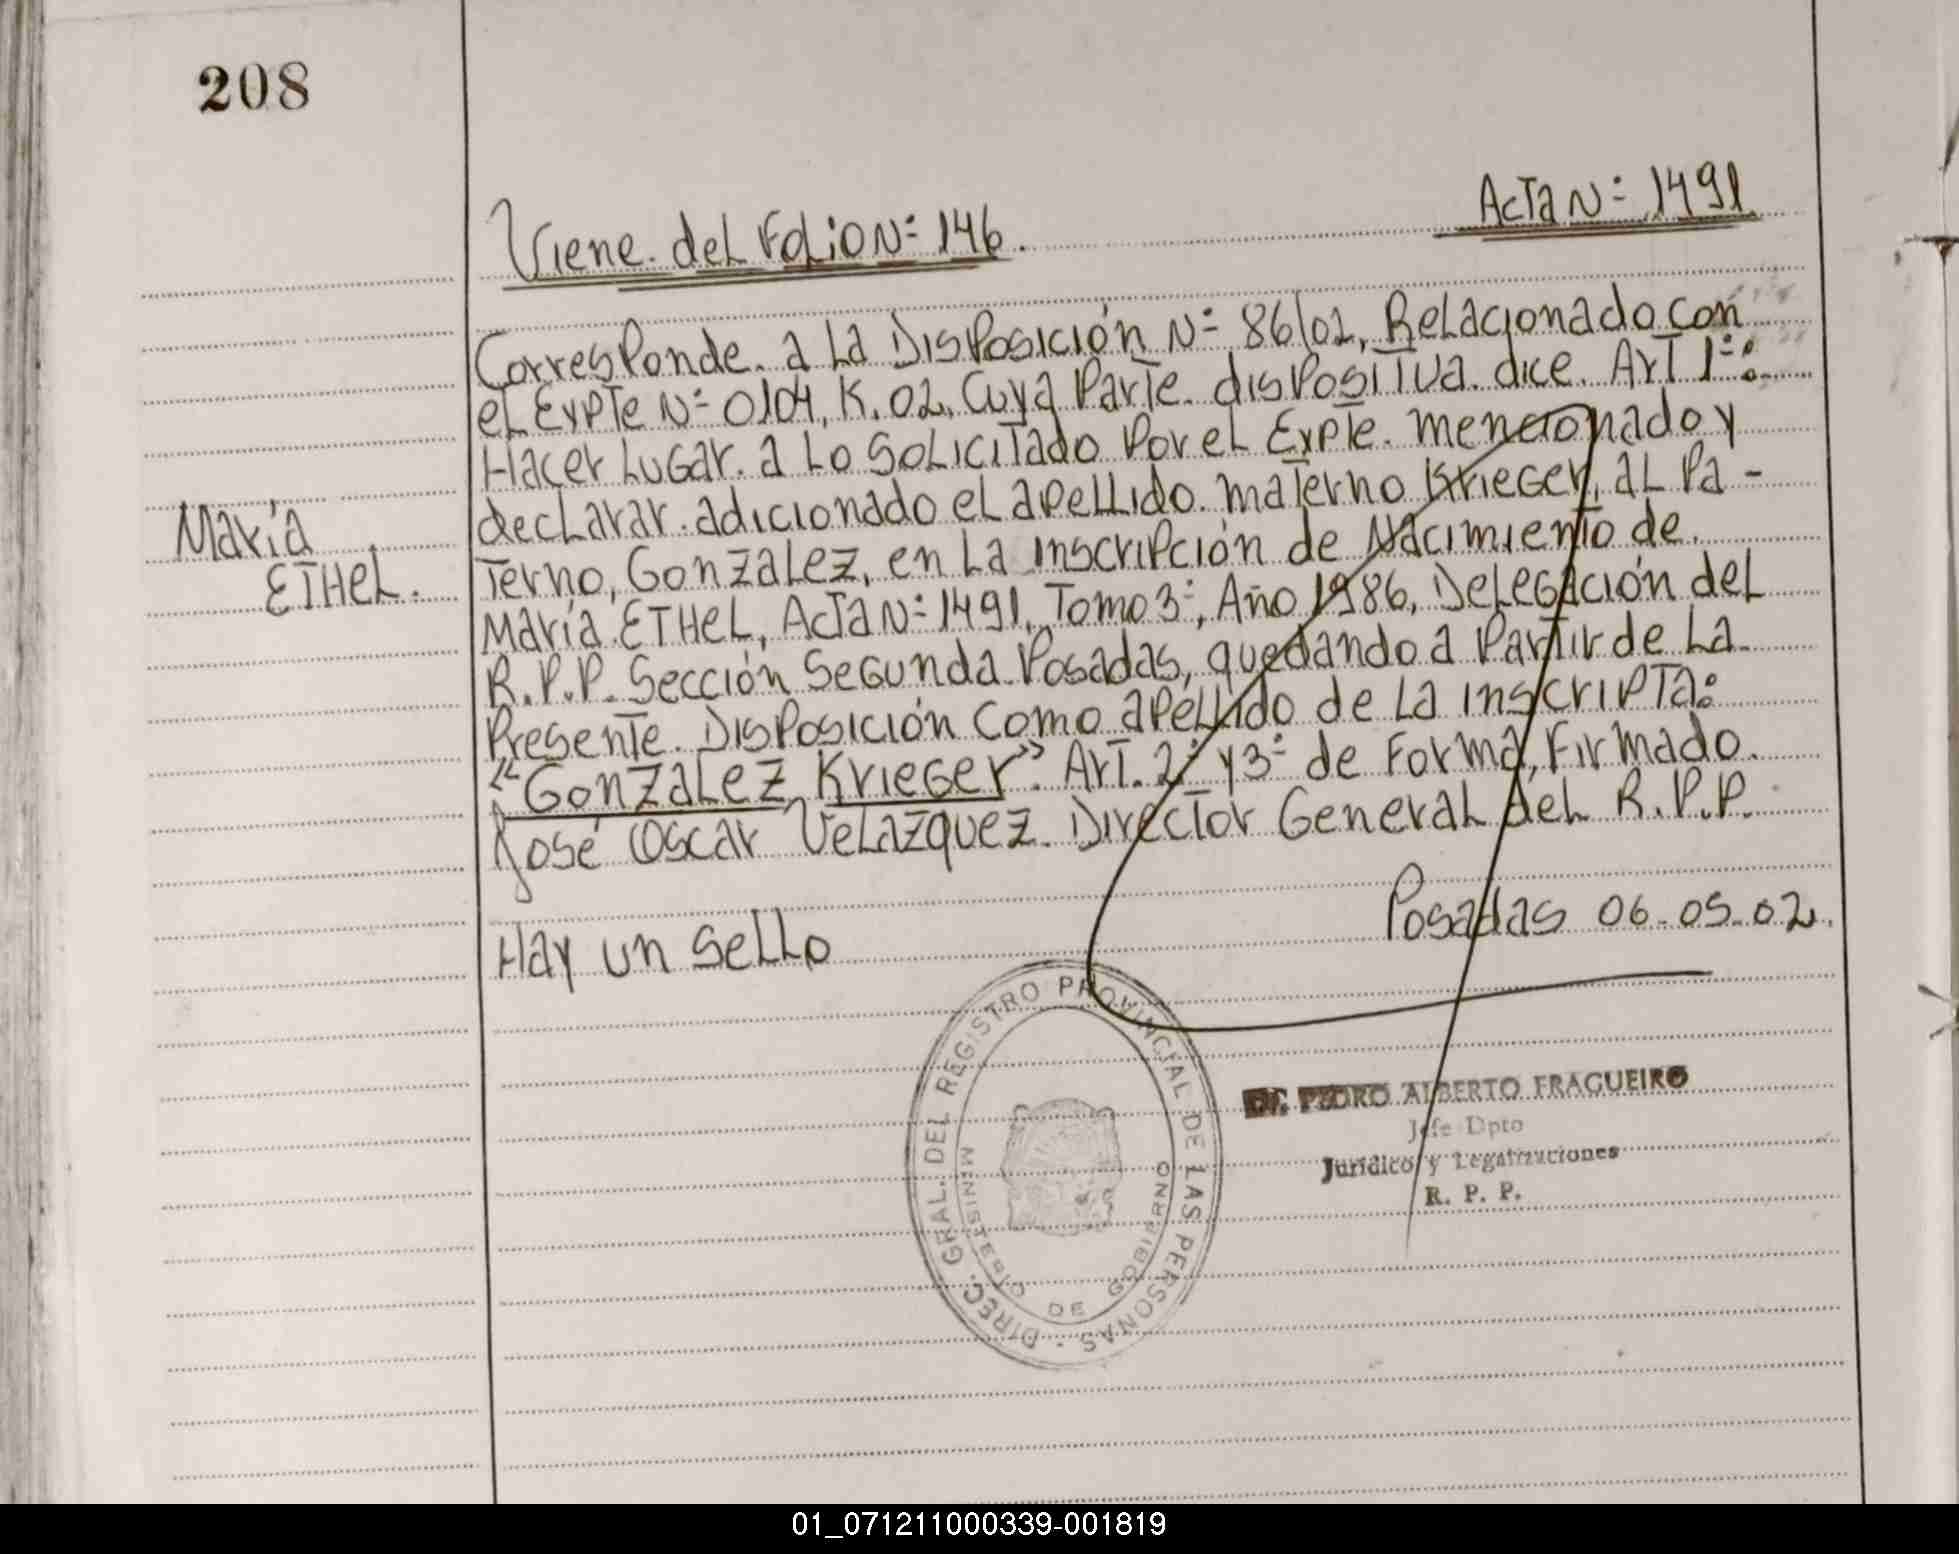 208
Viene del Folio Nº 146.
Acta Nº 1491
Corresponde a la Disposición Nº 86/02, Relacionado con
el Expte Nº 0104, K. 02, Cuya Parte dispositiva dice Art 1º:
Hacer Lugar a lo Solicitado Por el Expte. mencionado y
declarar adicionado el apellido materno Krieger, al Pa-
María
ETHEL.
Terno, Gonzalez, en la Inscripción de Nacimiento de
María ETHEL, Acta Nº 1491, Tomo 3º, Año 1986, Delegación del
R.P.P. Sección Segunda Posadas, quedando a Partir de la
Presente Disposición Como apellido de la Inscripta:
"Gonzalez Krieger". Art. 2º y 3º de Forma, Firmado
José Oscar Velazquez. Director General del R.P.P.
Posadas 06-05-02.
Hay un Sello
DIREC. GRAL. DEL REGISTRO PROVINCIAL DE LAS PERSONAS -
MINISTERIO DE GOBIERNO
Dr. PEDRO ALBERTO FRAGUEIRO
Jefe Dpto
Jurídico y Legalizaciones
R. P. P.
01_071211000339-001819